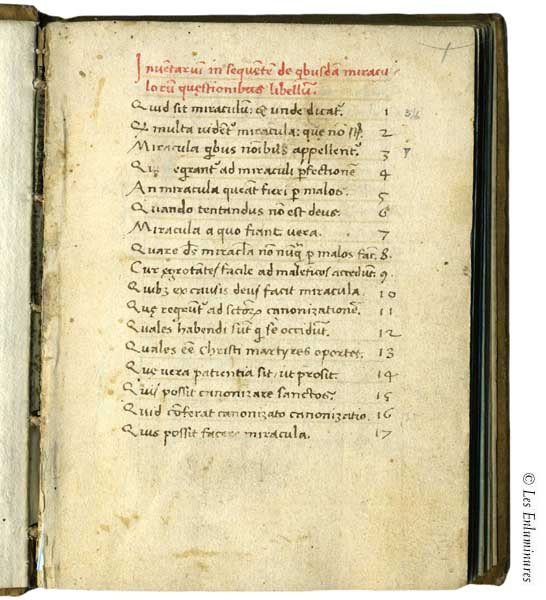 Inventarum in sequentē de qbusdā miracu
lorū questionibus libellum.
Quid sit miraculū: & unde dicat᷑. 1
Q multa videt᷑ miracula: que nō sūt. 2
Miracula qbus noibus appellent᷑. 3
Que exigant᷑ ad miraculi pfectionē 4
An miracula queāt fieri p malos. 5
Quando tentandus nō est deus. 6
Miracula a quo fiant vera. 7
Quare ds miracla nō nūq p malos fac. 8.
Cur egrotātes facile ad maleficos accedūt. 9.
Quibz ex causis deus facit miracula. 10
Que reqrunt᷑ ad sctorz canonizationē. 11
Quales habendi sūt q se occidūt. 12
Quales eē Christi martyres oportet. 13
Que vera patientia sit, ut prosit. 14
Quis possit canonizare sanctos. 15
Quid cōferat canonizato canonizatio. 16
Quis possit facere miracula. 17
© Les Enluminures